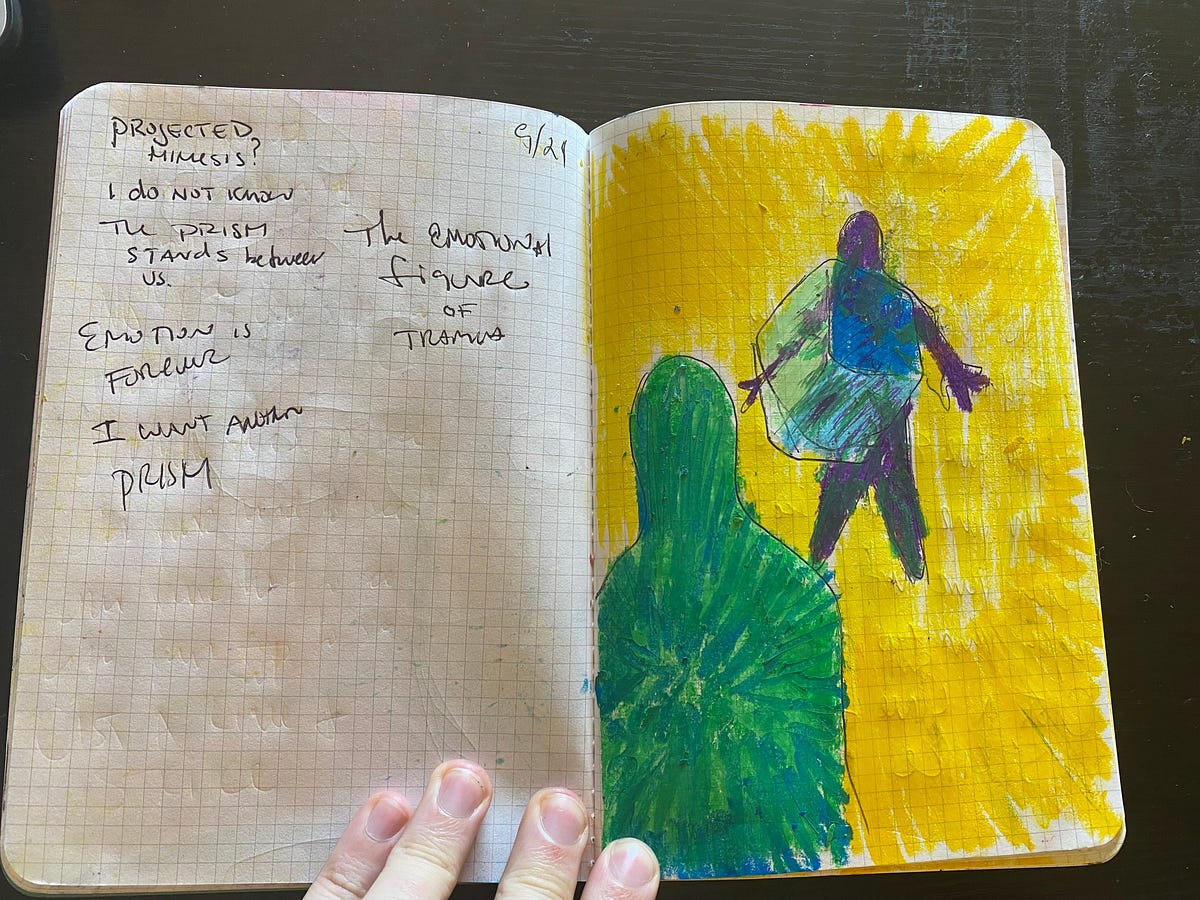 PROJECTED
MIMESIS?
I do NOT KNOW
The PRISM
STANDS between
US.
EMOTION IS
FOREVER
I WANT ANOTHER
PRISM
9/21
The EMOTIONAL
figure
OF
TRAUMA